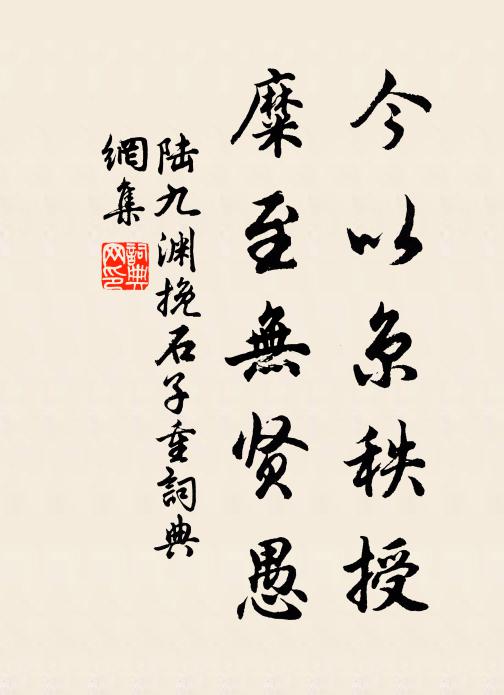 今以京秩授
糜至無贤愚
陸九渊挽石子重詞典
網集
詞典
网印